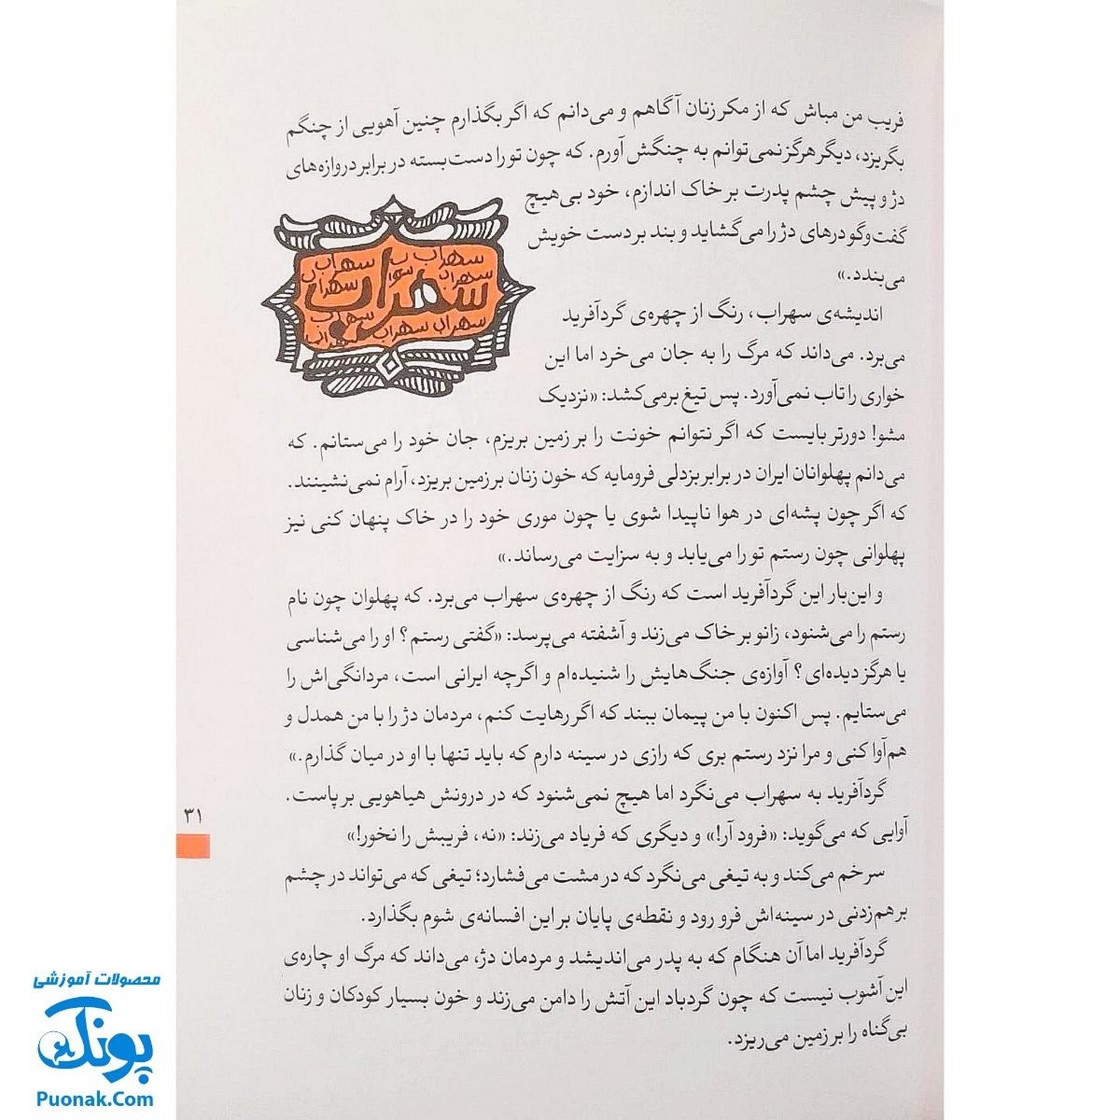 فریب من مباش که از مکر زنان آگاهم و می‌دانم که اگر بگذارم چنین آهویی از چنگم
بگریزد، دیگر هرگز نمی‌توانم به چنگش آورم. که چون تو را دست‌بسته در برابر دروازه‌های
دژ و پیش چشم پدرت بر خاک اندازم، خود بی‌هیچ
گفت‌وگو درهای دژ را می‌گشاید و بند بر دست خویش
می‌بندد.»
سهراب
سهراب
سهراب
سهراب
سهراب
سهراب
سهراب
سهراب
سهراب
اندیشه‌ی سهراب، رنگ از چهره‌ی گردآفرید
می‌برد. می‌داند که مرگ را به جان می‌خرد اما این
خواری را تاب نمی‌آورد. پس تیغ برمی‌کشد: «نزدیک
مشو! دورتر بایست که اگر نتوانم خونت را بر زمین بریزم، جان خود را می‌ستانم. که
می‌دانم پهلوانان ایران در برابر بزدلی فرومایه که خون زنان بر زمین بریزد، آرام نمی‌نشینند.
که اگر چون پشه‌ای در هوا ناپیدا شوی یا چون موری خود را در خاک پنهان کنی نیز
پهلوانی چون رستم تو را می‌یابد و به سزایت می‌رساند.»
و این‌بار این گردآفرید است که رنگ از چهره‌ی سهراب می‌برد. که پهلوان چون نام
رستم را می‌شنود، زانو بر خاک می‌زند و آشفته می‌پرسد: «گفتی رستم؟ او را می‌شناسی
یا هرگز دیده‌ای؟ آوازه‌ی جنگ‌هایش را شنیده‌ام و اگرچه ایرانی است، مردانگی‌اش را
می‌ستایم. پس اکنون با من پیمان ببند که اگر رهایت کنم، مردمان دژ را با من همدل و
هم‌آوا کنی و مرا نزد رستم بری که رازی در سینه دارم که باید تنها با او در میان گذارم.»
گردآفرید به سهراب می‌نگرد اما هیچ نمی‌شنود که در درونش هیاهویی برپاست.
آوایی که می‌گوید: «فرود آر!» و دیگری که فریاد می‌زند: «نه، فریبش را نخور!»
سر خم می‌کند و به تیغی می‌نگرد که در مشت می‌فشارد؛ تیغی که می‌تواند در چشم
برهم‌زدنی در سینه‌اش فرو رود و نقطه‌ی پایان بر این افسانه‌ی شوم بگذارد.
گردآفرید اما آن هنگام که به پدر می‌اندیشد و مردمان دژ، می‌داند که مرگ او چاره‌ی
این آشوب نیست که چون گردباد این آتش را دامن می‌زند و خون بسیار کودکان و زنان
بی‌گناه را بر زمین می‌ریزد.
۳۱
محصولات آموزشی
پونک
Puonak.Com